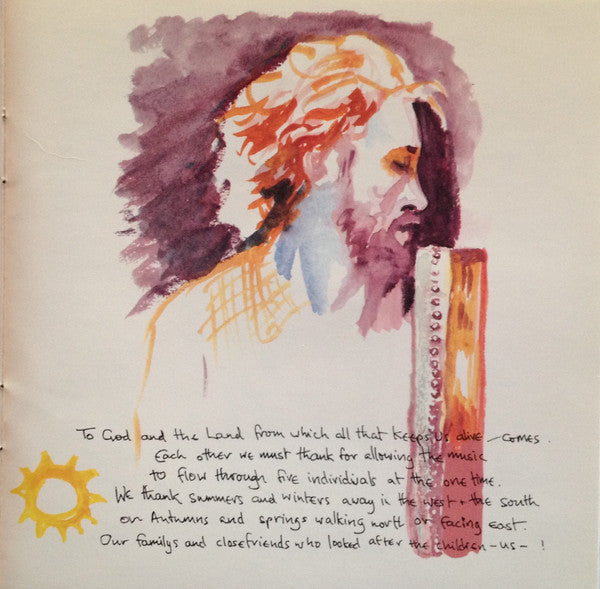 To God and the Land from which all that keeps us alive – comes.
Each other we must thank for allowing the music
to flow through five individuals at the one time.
We thank summers and winters away in the west + the south
on Autumns and springs walking north or facing east.
Our familys and closefriends who looked after the children – us – !